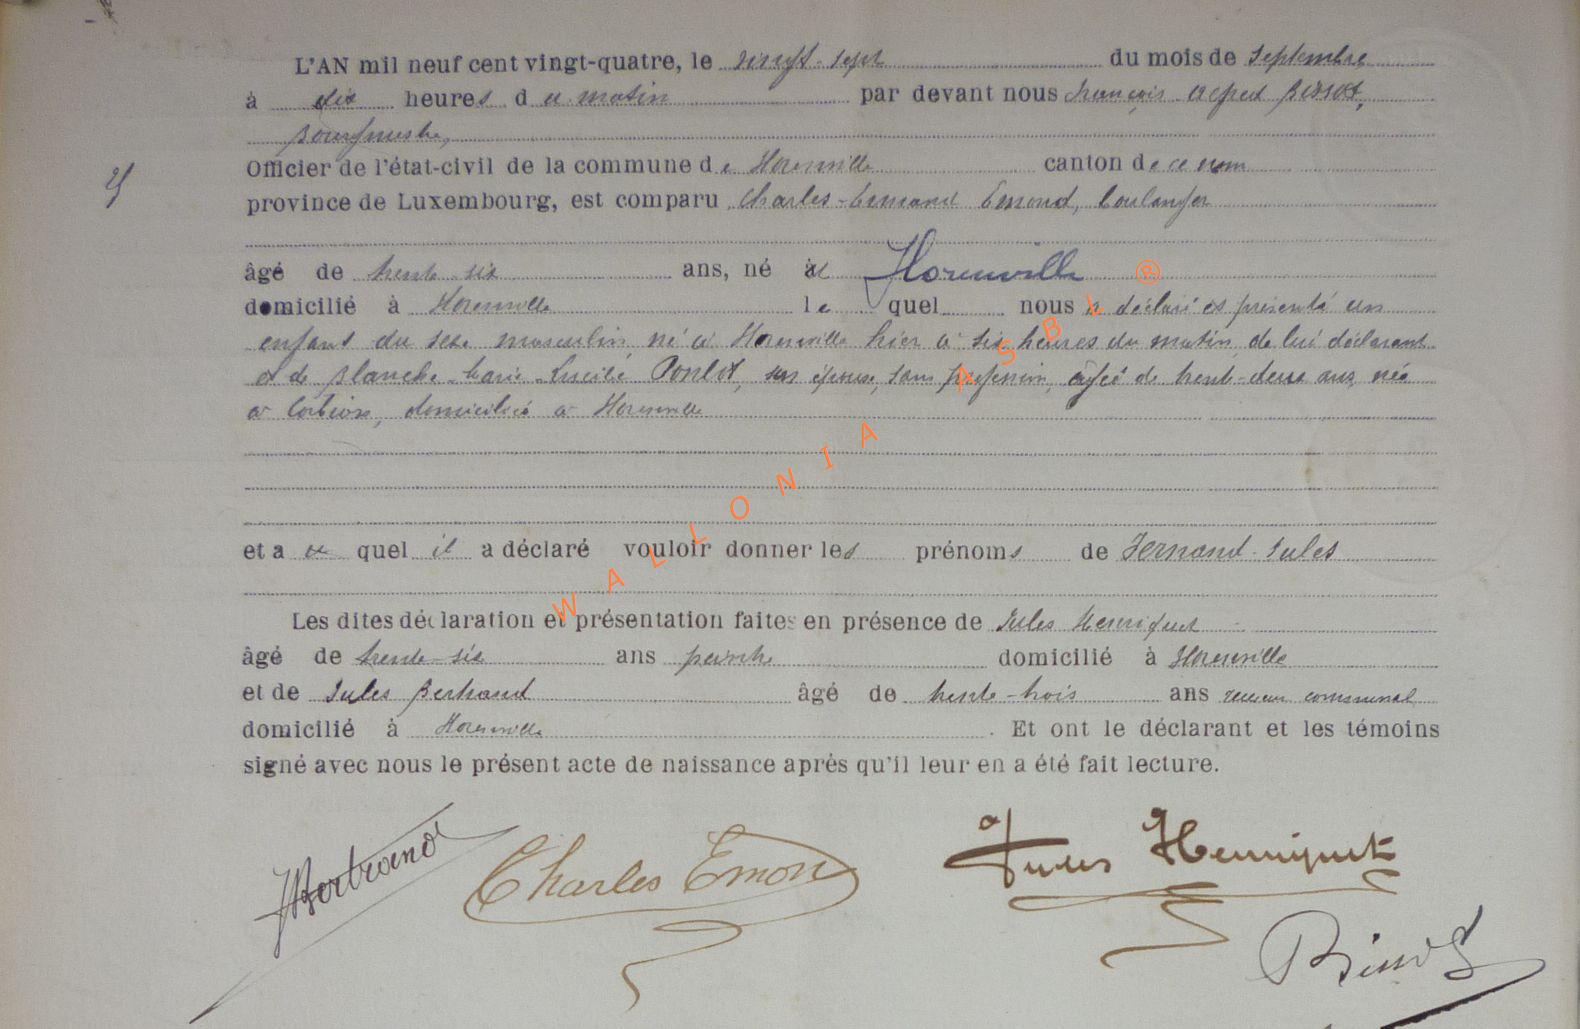 L'AN mil neuf cent vingt-quatre, le vingt-sept du mois de Septembre
à dix heures du matin par devant nous François Alfred Bissot,
Bourgmestre,
Officier de l'état-civil de la commune de Horenville canton de ce nom
25
province de Luxembourg, est comparu Charles-Armand Emond, boulanger
âgé de trente six ans, né à Horenville
domicilié à Horenville lequel nous a déclaré et présenté un
enfant du sexe masculin, né à Horenville hier à six heures du matin, de lui déclarant
et de Blanche-Marie-Lucie Ponlot, son épouse, sans profession, âgée de trente-deux ans, née
à domiciliée à Horenville
et auquel il a déclaré vouloir donner les prénoms de Fernand-Jules
Les dites déclaration et présentation faites en présence de Jules Henriquet
âgé de trente-six ans peintre domicilié à Horenville
et de Jules Bertrand âgé de trente-trois ans receveur communal
domicilié à Horenville . Et ont le déclarant et les témoins
signé avec nous le présent acte de naissance aprés qu'il leur en a été fait lecture.
JBertrand Charles Emon Jules Henriquet
Bissot
WALLONIA ASBL ®